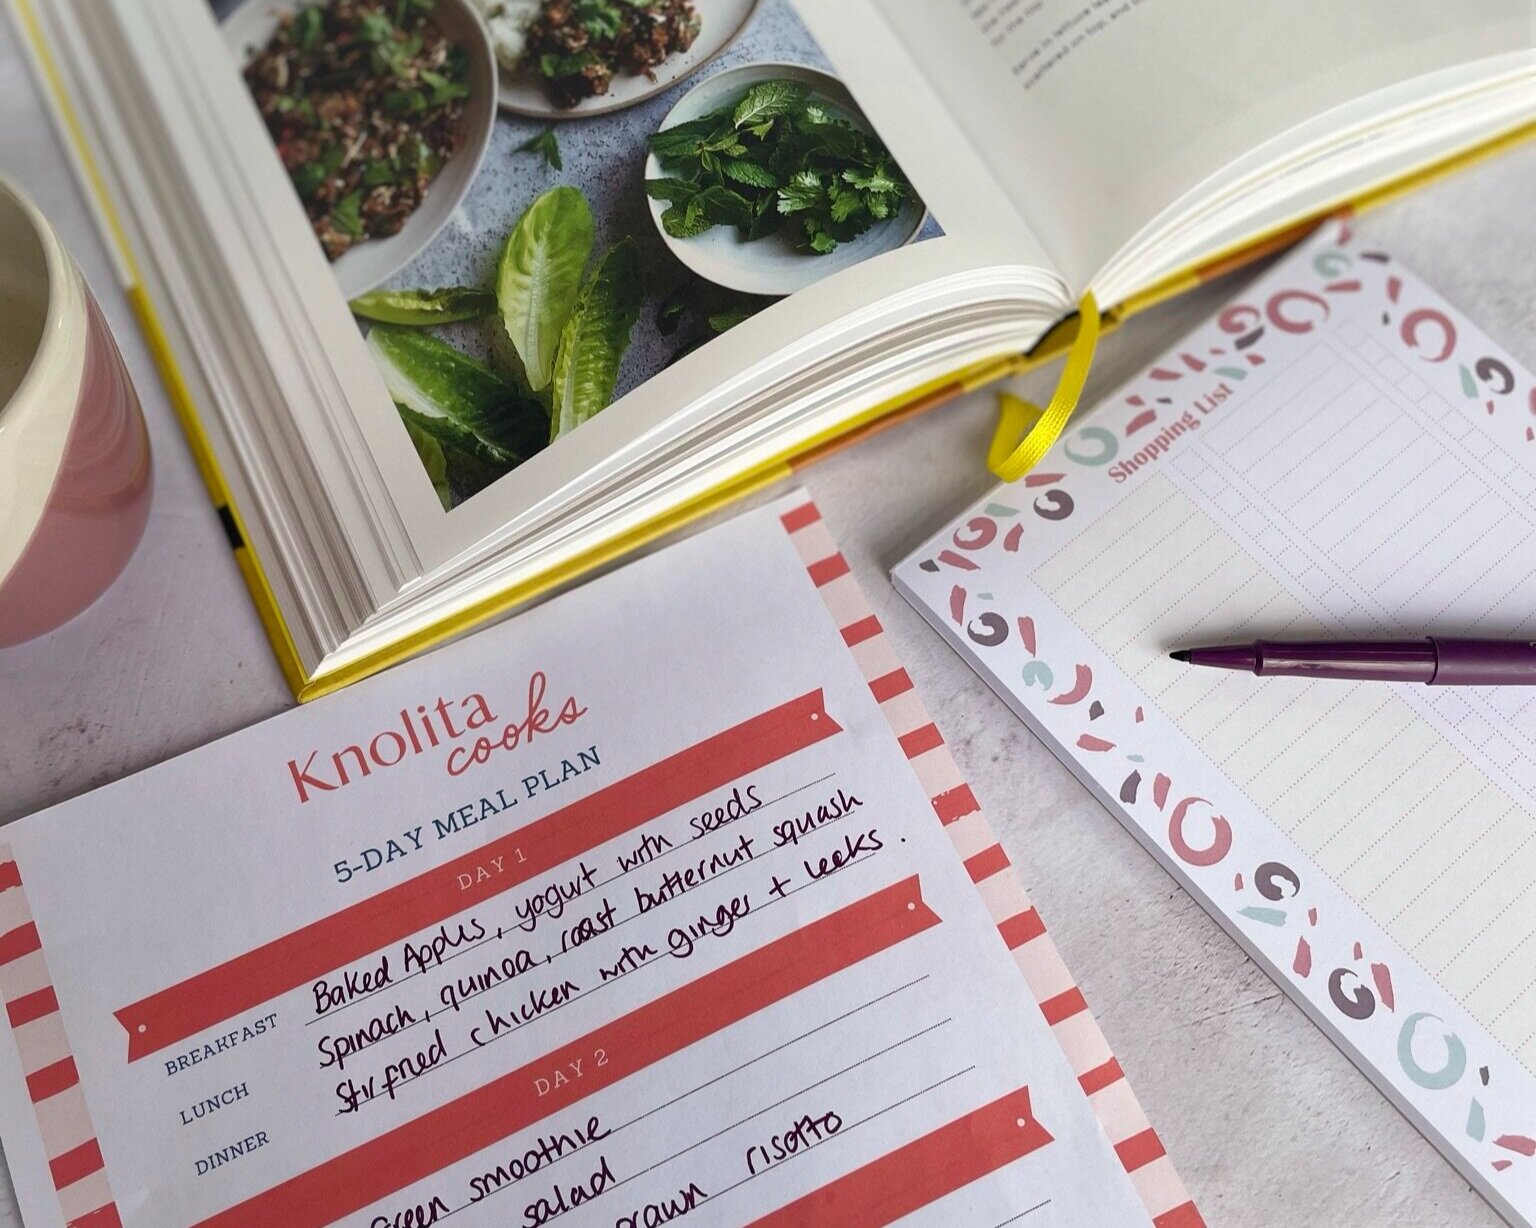 Shopping List
Knolita
cooks
5-DAY MEAL PLAN
DAY 1
BREAKFAST Baked Apples, yogurt with seeds
LUNCH Spinach, quinoa, roast butternut squash
DINNER Stir fried chicken with ginger + leeks.
DAY 2
Green smoothie
salad
prawn risotto